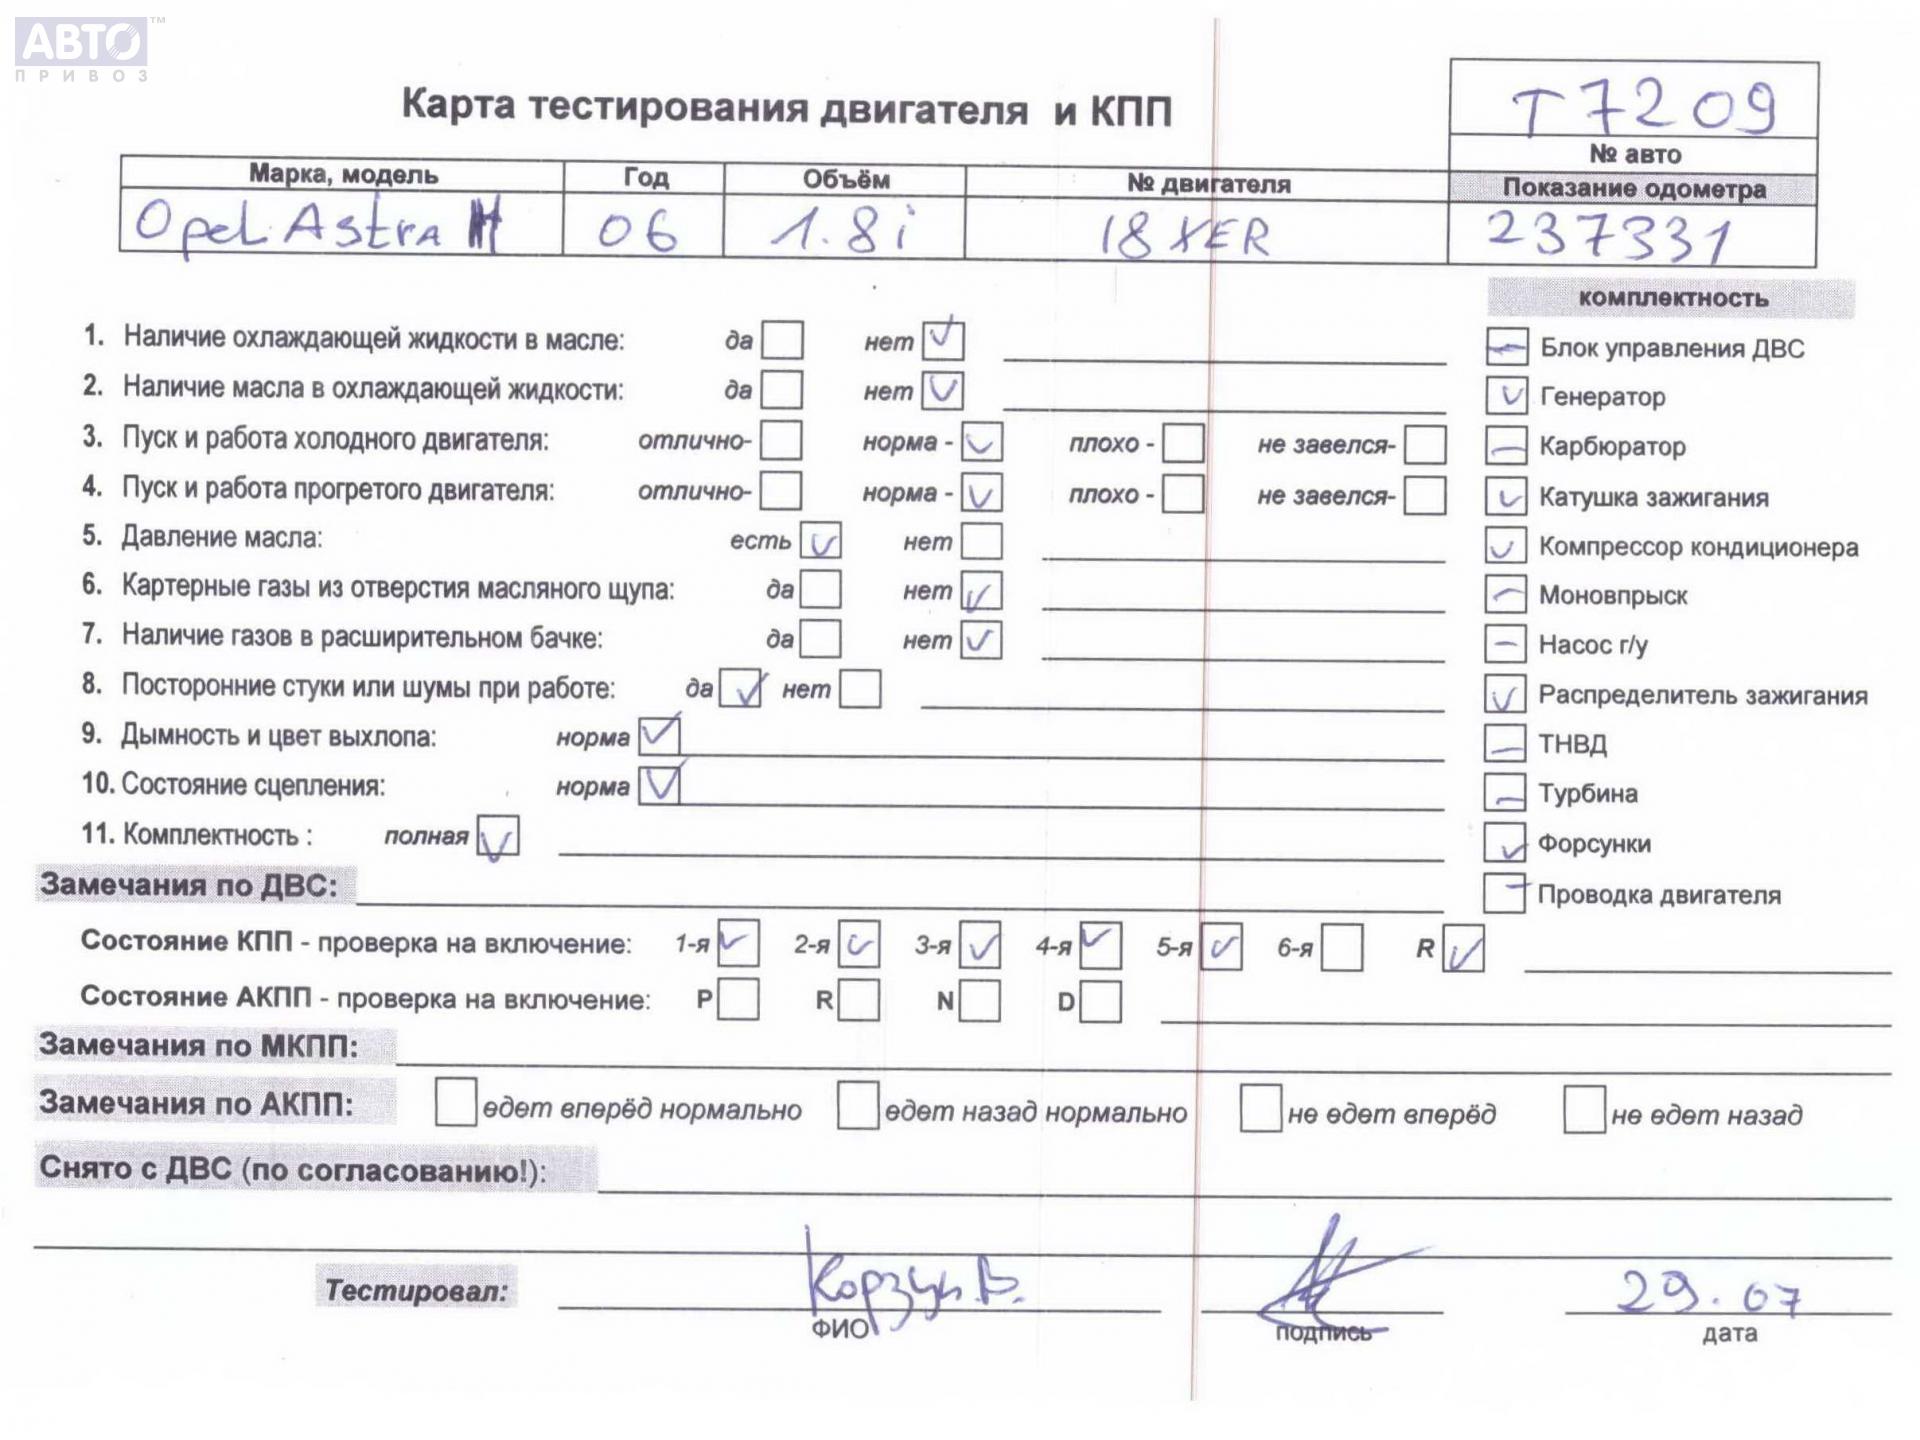 АВТО ™
ПРИВОЗ
Карта тестирования двигателя и КПП
T7209
№ авто
Марка, модель Год Объём № двигателя Показание одометра
Opel Astra H 06 1.8i 18XER 237331
комплектность
1. Наличие охлаждающей жидкости в масле: да нет ✓
Блок управления ДВС
2. Наличие масла в охлаждающей жидкости: да нет ✓
Генератор ✓
3. Пуск и работа холодного двигателя: отлично- норма - ✓ плохо - не завелся-
Карбюратор
4. Пуск и работа прогретого двигателя: отлично- норма - ✓ плохо - не завелся-
Катушка зажигания ✓
5. Давление масла: есть ✓ нет
Компрессор кондиционера ✓
6. Картерные газы из отверстия масляного щупа: да нет ✓
Моновпрыск
7. Наличие газов в расширительном бачке: да нет ✓
Насос г/у
8. Посторонние стуки или шумы при работе: да ✓ нет
Распределитель зажигания ✓
9. Дымность и цвет выхлопа: норма ✓
ТНВД
10. Состояние сцепления: норма ✓
Турбина
11. Комплектность : полная ✓
Форсунки ✓
Замечания по ДВС:
Проводка двигателя
Состояние КПП - проверка на включение: 1-я ✓ 2-я ✓ 3-я ✓ 4-я ✓ 5-я ✓ 6-я R ✓
Состояние АКПП - проверка на включение: P R N D
Замечания по МКПП:
Замечания по АКПП: едет вперёд нормально едет назад нормально не едет вперёд не едет назад
Снято с ДВС (по согласованию!):
Тестировал: Корзун В. 29.07
ФИО подпись дата